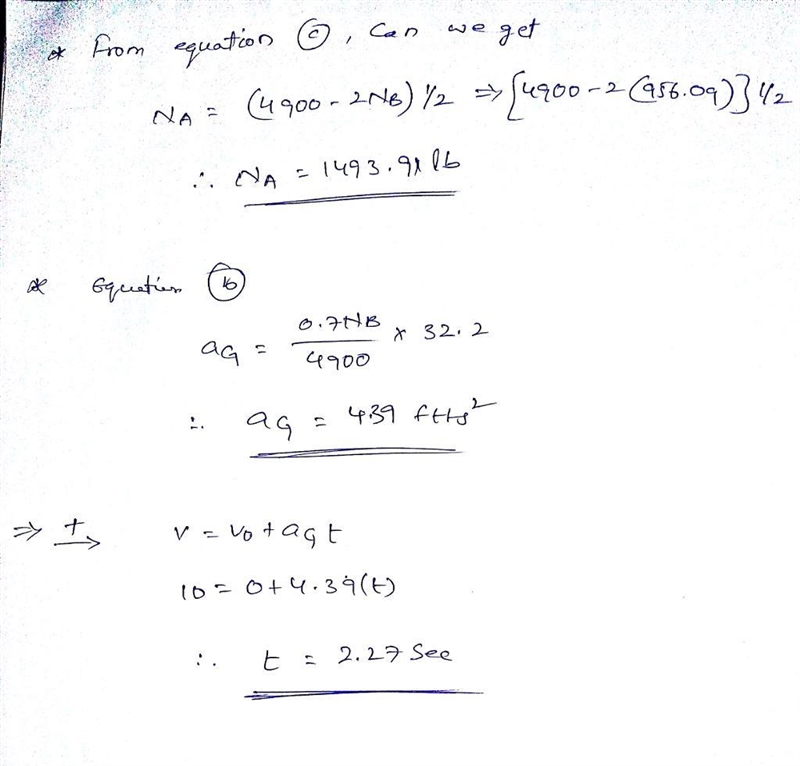 * From equation ⓒ, Can we get
NA = (4900-2NB) 1/2 ⇒ [4900-2(956.09)] 1/2
∴ NA = 1493.91 lb
* Equation ⓑ
aG = 0.7NB / 4900 × 32.2
∴ aG = 439 ft/s²
⇒ +→ v = v0 + aG t
10 = 0+4.39(t)
∴ t = 2.27 Sec